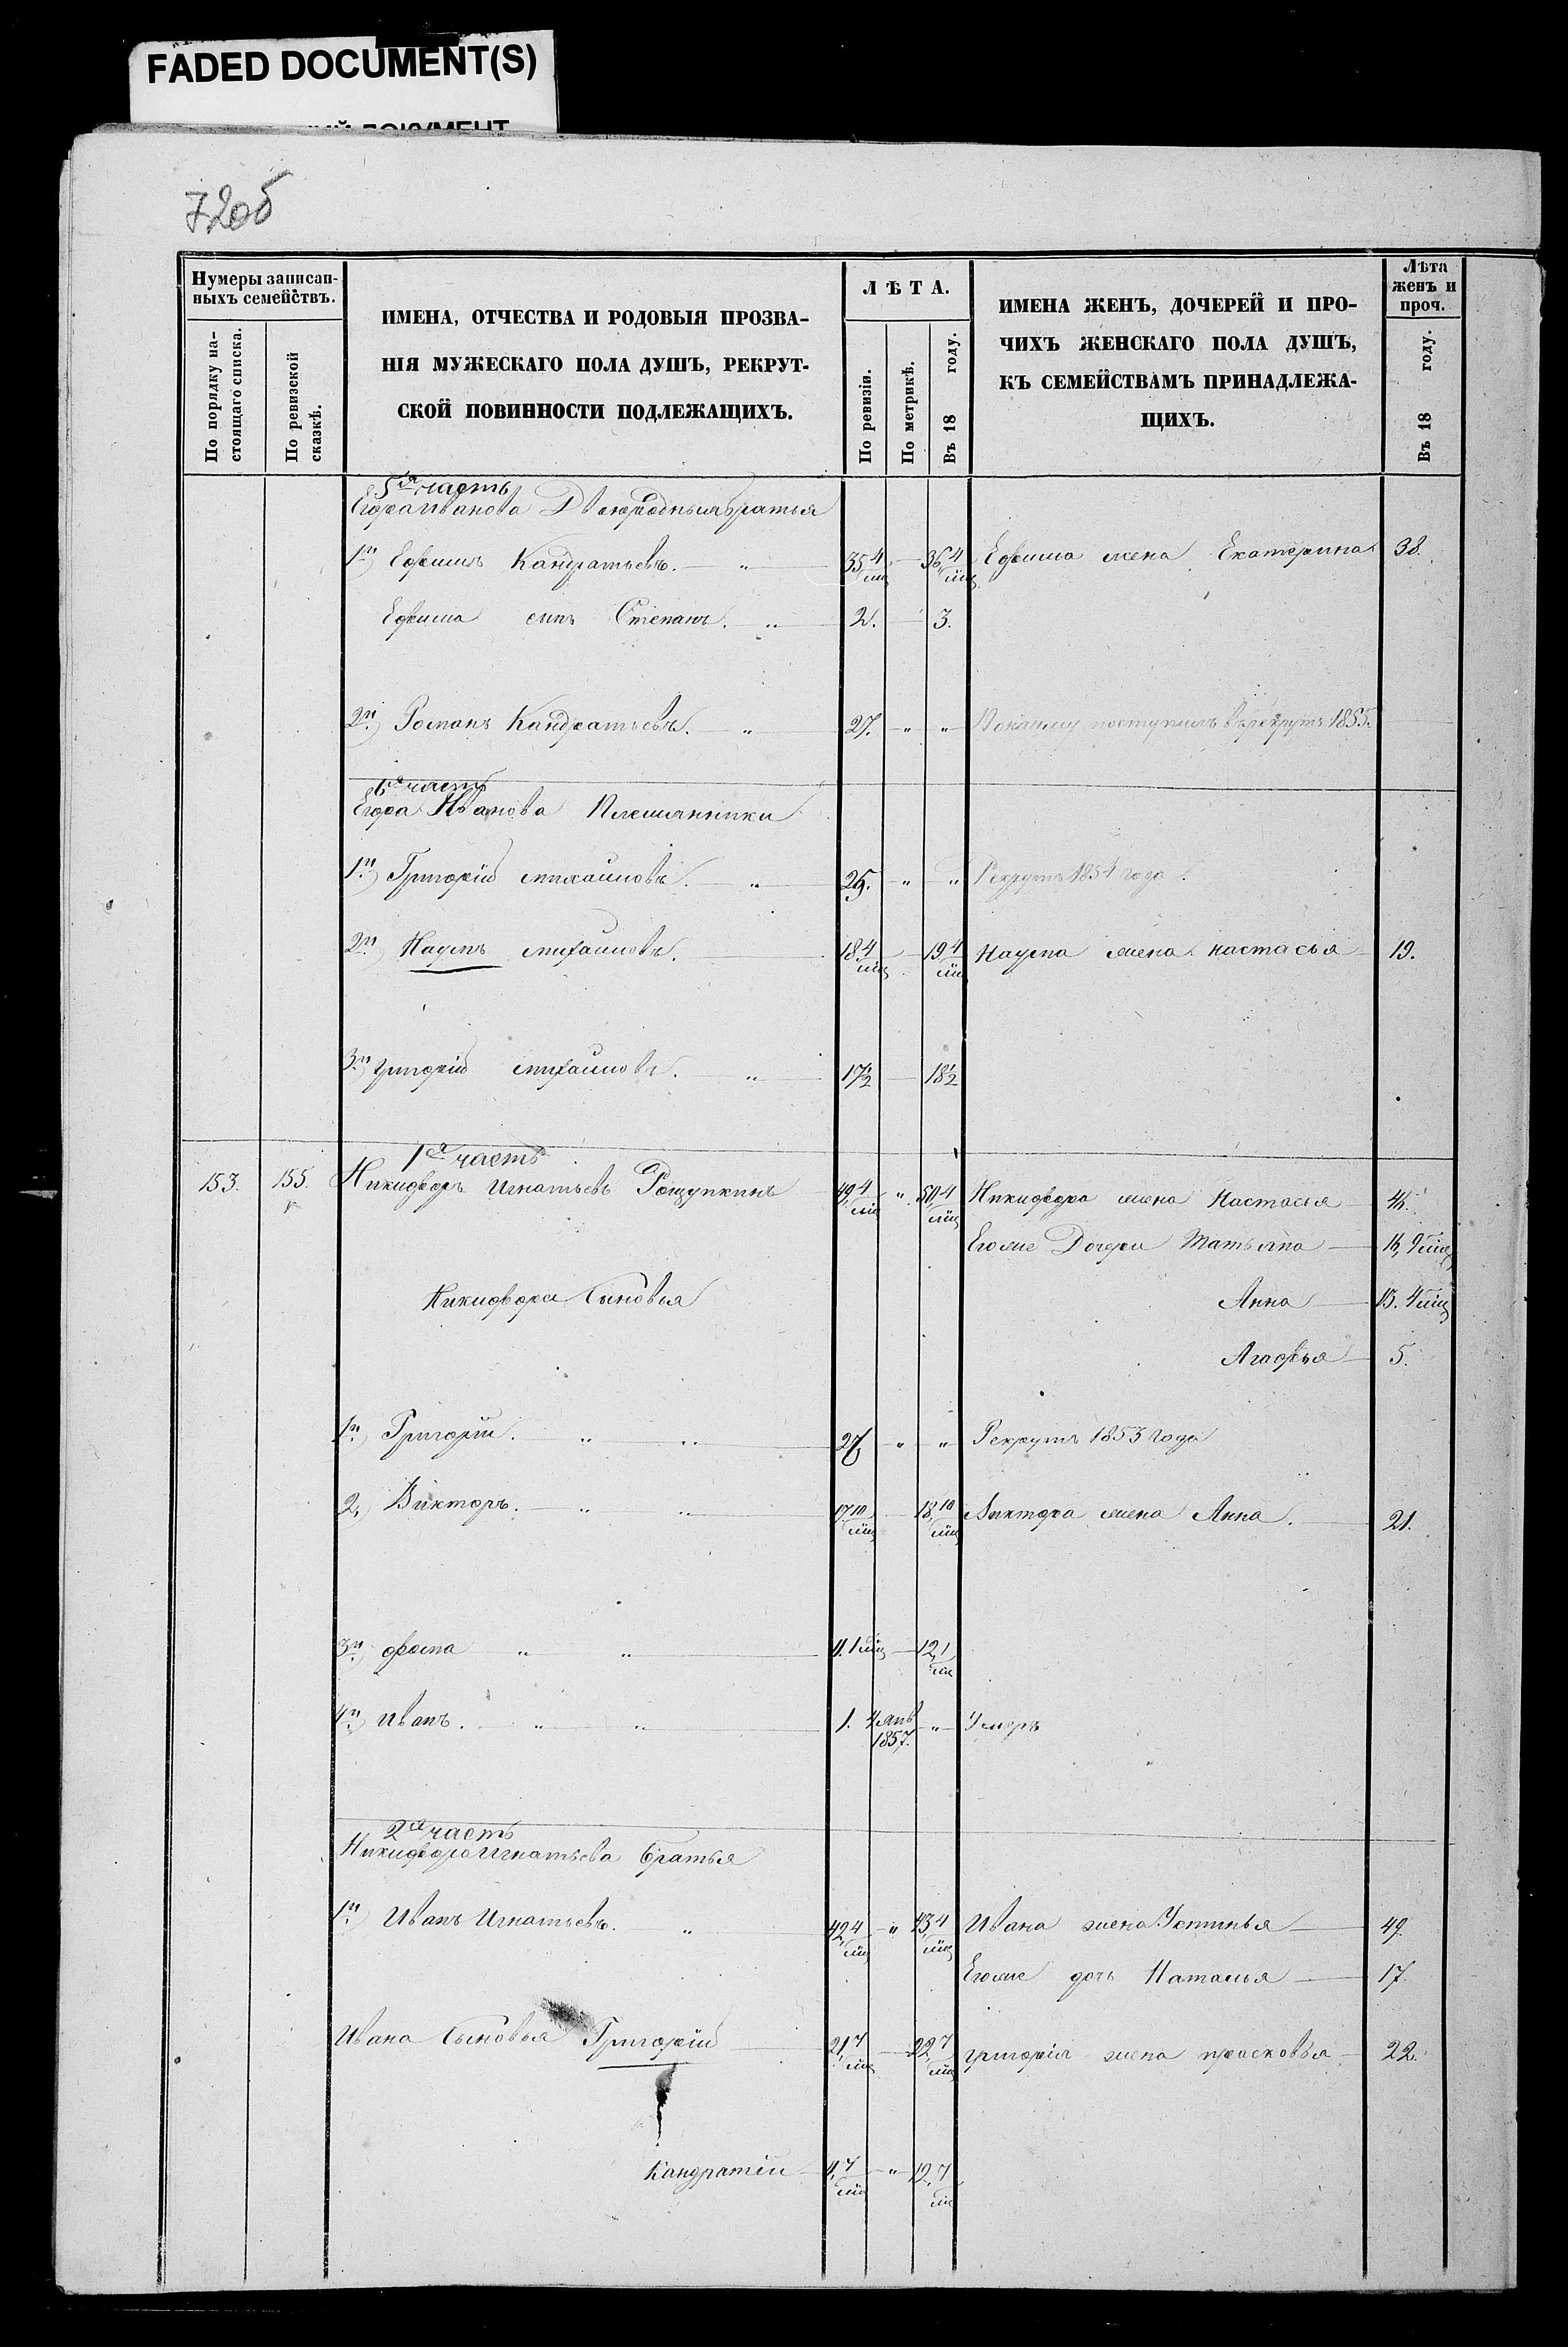 FADED DOCUMENT(S)
720б
Нумеры записан-
ныхъ семействъ.
По порядку на-
стоящаго списка.
По ревизской
сказкѣ.
ИМЕНА, ОТЧЕСТВА И РОДОВЫЯ ПРОЗВА-
НІЯ МУЖЕСКАГО ПОЛА ДУШЪ, РЕКРУТ-
СКОЙ ПОВИННОСТИ ПОДЛЕЖАЩИХЪ.
ЛѢТА.
По ревизіи.
По метрикѣ.
Въ 18 году.
ИМЕНА ЖЕНЪ, ДОЧЕРЕЙ И ПРО-
ЧИХЪ ЖЕНСКАГО ПОЛА ДУШЪ,
КЪ СЕМЕЙСТВАМЪ ПРИНАДЛЕЖА-
ЩИХЪ.
Лѣта
женъ и
проч.
Въ 18 году.
5я часть
Егора Иванова Двоюродныя братья
1й) Ефимъ Кандратьевъ. 35 4/мц 36 4/мц Ефима жена Екатерина 38.
Ефима сынъ Степанъ. 2. 3.
2й) Романъ Кандратьевъ. 27. " " поступилъ в рекруты 1855.
6я часть
Егора Иванова Племянники
1й) Григорій михаиловъ. 25. " " Рекрутъ 1854 года.
2й) Наумъ михаиловъ. 18 4/мц 19 4/мц Наума жена настасья 19.
3й григорій михаиловъ. 17½ 18½
1я часть
153. 155. Никифоръ Игнатьевъ Рощупкинъ 49 4/мц " 50 4/мц Никифора жена Настасья
Егоже Дочери Татьяна 9 мц
Никифора Сыновья Анна 13. 4 мц
Агафья 5.
1й) Григорій. 27 " " Рекрутъ 1853 года
2,) Викторъ. 17 10/мц 18 10/мц Виктора жена Анна. 21.
3й) фома " " 11. 1 мц 12 1/мц
4й) Иванъ. " " 1. 4 янв 1857. " Умеръ
2я часть
Никифора Игнатьева братья
1й) Иванъ Игнатьевъ. " 42 4/мц " 43 4/мц Ивана жена Устинья 49.
Егоже дочь Наталья 17.
Ивана Сыновья Григорій 21 7/мц 22 7/мц григорія жена прасковья 22.
Кандратіи 11 7/мц " 12 7/мц